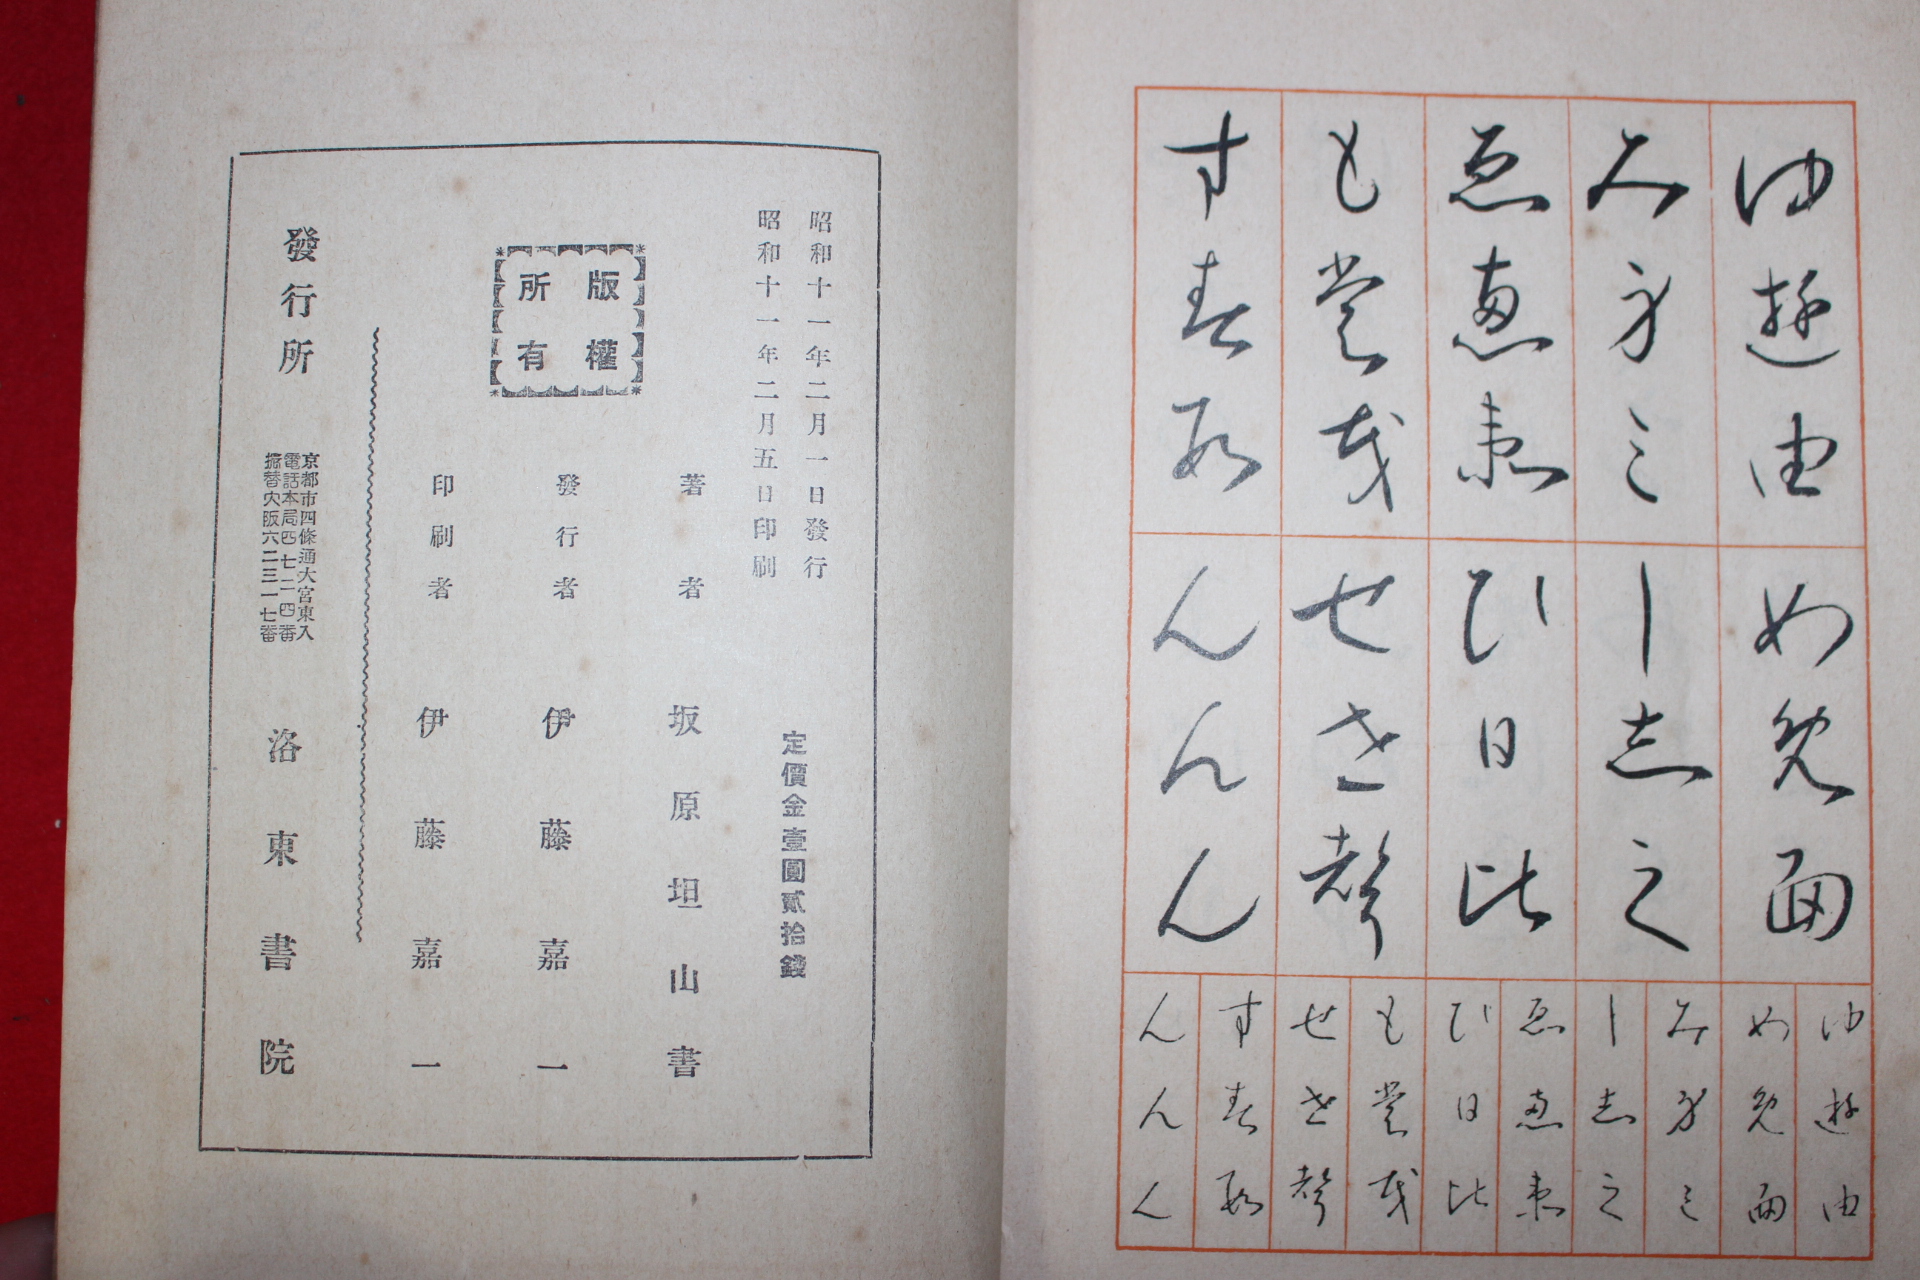 ゆ遊由
み身三
ゑ恵衛
も裳茂
す春
め免面
し志之
ひ日比
せ世聲
んんん
ゆ遊由
め免面
み身三
し志之
ゑ恵衛
ひ日比
も裳茂
せ世聲
す春
んんん
昭和十一年二月一日發行
昭和十一年二月五日印刷
定價金壹圓貳拾錢
著者 坂原坦山書
版權
所有
發行者 伊藤嘉一
印刷者 伊藤嘉一
發行所
京都市四條通大宮東入
電話本局四七二四番
振替大阪六二三一七番
洛東書院